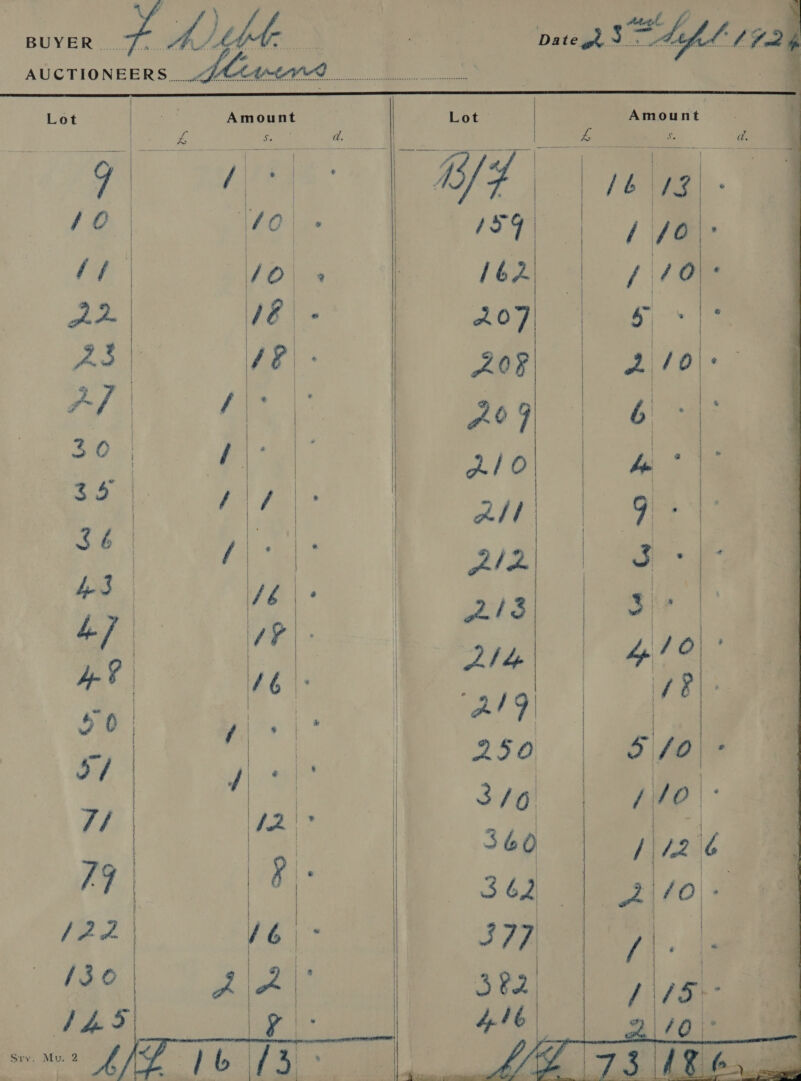 BUYER F Webb.
Date 23rd Sept 1924
AUCTIONEERS Stevens
Lot Amount
£ s. d.
9 1 · ·
10 10 ·
11 10 ·
22 18 ·
23 18 ·
27 1 · ·
30 1 · ·
35 1 1 ·
36 1 · ·
43 16 ·
47 18 ·
48 16 ·
50 1 · ·
51 1 · ·
71 12 ·
79 8 ·
122 16 ·
130 2 2 ·
145 8 ·
Srv. Mu. 2
16 13 ·
Lot Amount
£ s. d.
B/F 16 13 ·
159 1 10 ·
162 1 10 ·
207 5 · ·
208 2 10 ·
209 6 · ·
210 4 · ·
211 9 · ·
212 3 · ·
213 3 · ·
214 4 10 ·
219 18 ·
250 5 10 ·
310 1 10 ·
360 1 12 6
362 2 10 ·
377 1 · ·
382 1 15 ·
416 2 10 ·
73 18 6